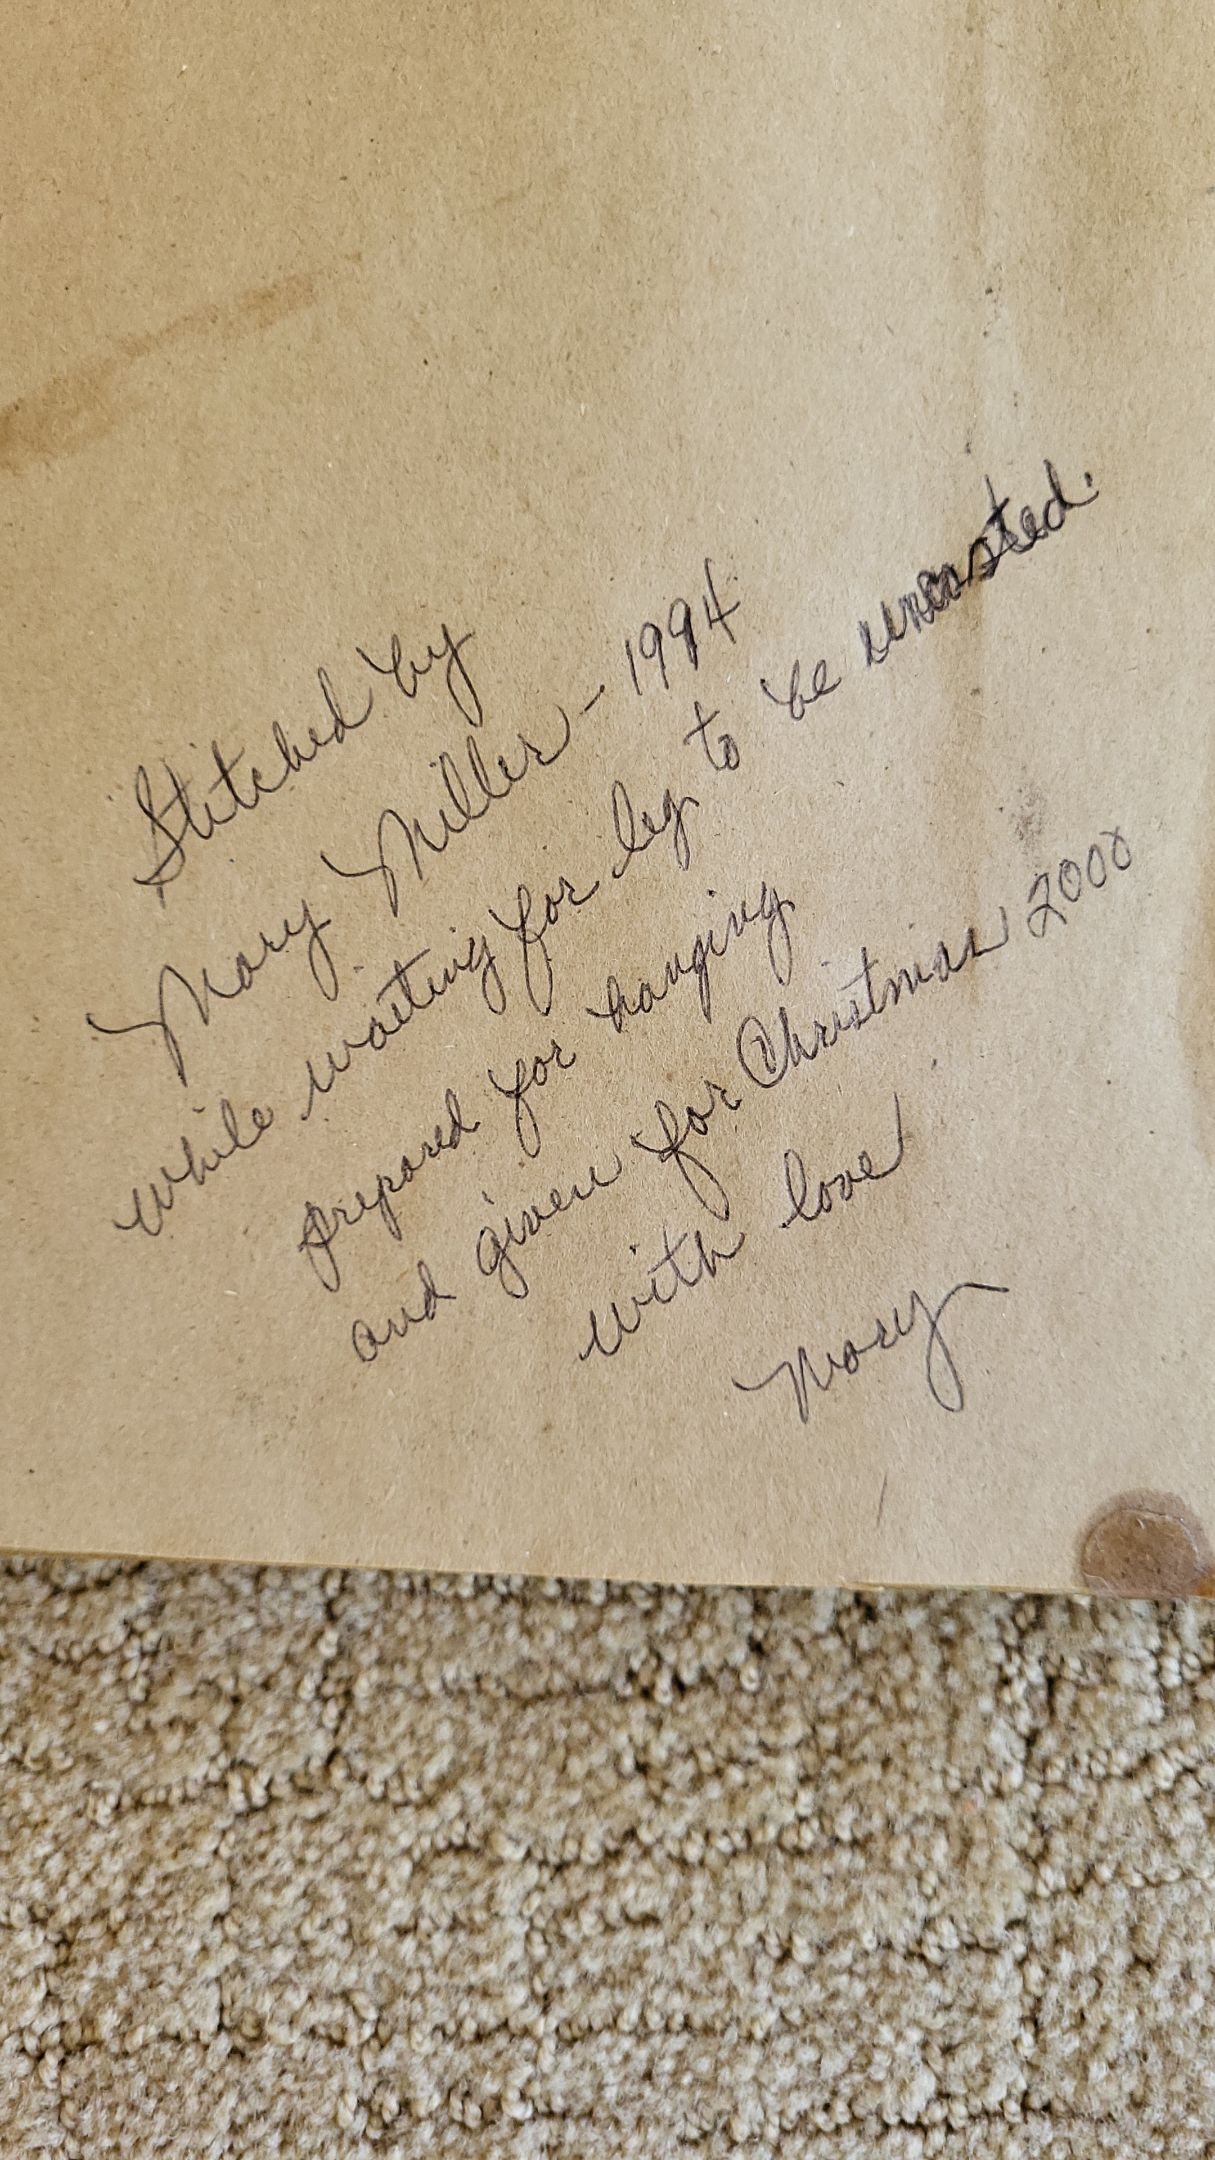 Stitched by
Mary Miller - 1994
while waiting for leg to be uncasted.
prepared for hanging
and given for Christmas 2000
with love
Mary